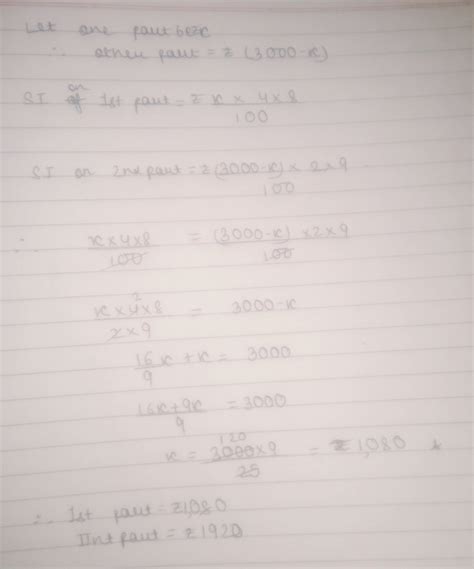 Let one part be ₹x
∴ other part = ₹ (3000-x)
SI on 1st part = ₹ x × 4×8
100
SI on 2nd part = ₹(3000-x) × 2×9
100
∴ x×4×8 = (3000-x) ×2×9
100 100
x×4×8 = 3000-x
2×9
2
16x + x = 3000
9
16x+9x = 3000
9
120
x = 3000×9 = ₹1,080
25
∴ Ist part = ₹1,080
IInt part = ₹1920